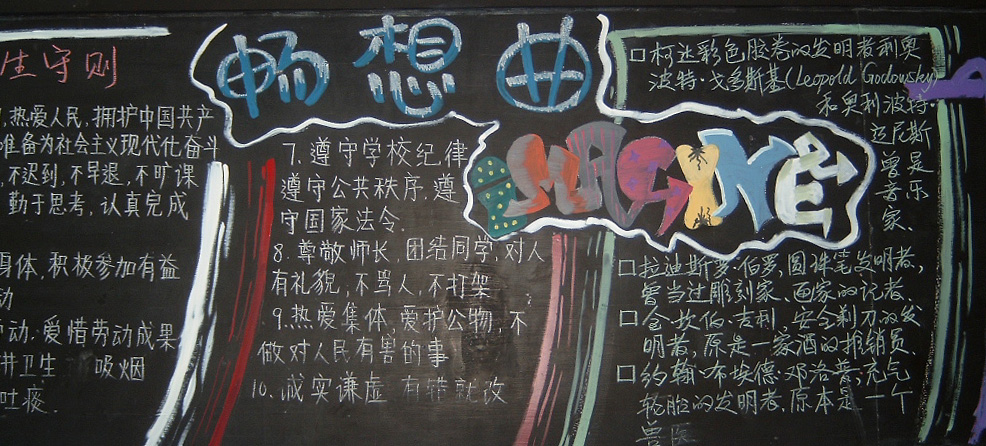 生守则
热爱人民,拥护中国共产
准备为社会主义现代化奋斗
不迟到,不早退,不旷课
勤于思考,认真完成
身体,积极参加有益
动
劳动.爱惜劳动成果
卫生 吸烟
吐痰.
畅想曲
7.遵守学校纪律
遵守公共秩序,遵
守国家法令.
8.尊敬师长,团结同学,对人
有礼貌,不骂人,不打架
9.热爱集体,爱护公物,不
做对人民有害的事
10.诚实谦虚 有错就改
IMAGINE
□柯达彩色胶卷的发明者利奥
波特·戈多斯基(Leopold Godowsky)
和奥利波特·
迈尼斯
曾是
音乐
家.
□拉迪斯罗·伯罗,圆珠笔发明者,
曾当过雕刻家、画家的记者.
□金坎伯·吉利,安全剃刀的发
明者,原是一家酒的推销员.
□约翰·布埃德·邓洛普,充气
轮胎的发明者,原本是一个
兽医